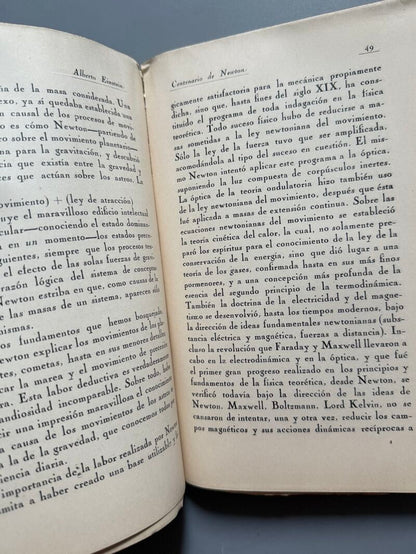 Alberto Einstein
ia de la masa considerada. Una
exo, ya si quedaba establecida una
n causal de los procesos de movi-
o es cómo Newton—partiendo de
l movimiento planetario—
para la gravitación, y descubrió
cia que existía entre la gravedad y
es que actúan sobre los astros. La
ovimiento) + (ley de atracción)
uye el maravilloso edificio intelectual
rcular—conociendo el estado domi
en un momento—los estados prece-
guientes, siempre que los procesos ten-
el efecto de las solas fuerzas de gravi-
razón lógica del sistema de conceptos
Newton estriba en que, como causas
las masas de un sistema, aparecen sólo
mismas.
s fundamentos que hemos bosquejado
ewton explicar los movimientos de los pla-
etas, cometas, hasta en sus menores detalles
car la marea y el movimiento de
a. Esta labor deductiva es verdaderamente
andiosidad incomparable. Sobre todo, hubo
cir una impresión maravillosa el conocer que
a causa de los movimientos de los
la de la gravedad, que conocemos todos por
iencia diaria.
importancia de la labor realizada por Newton
imita a haber creado una base utilizable y
Centenario de Newton.
49
gicamente satisfactoria para la mecánica propiamente
dicha, sino que, hasta fines del siglo XIX, ha cons-
tituído el programa de toda indagación en la física
teorética. Todo suceso físico hubo de reducirse a ma-
sas sometidas a la ley newtoniana del movimiento.
Sólo la ley de la fuerza tuvo que ser amplificada,
acomodándola al tipo del suceso en cuestión. El mis-
mo Newton intentó aplicar este programa a la óptica,
suponiendo la luz compuesta de corpúsculos inertes.
La óptica de la teoría ondulatoria hizo también uso
de la ley newtoniana del movimiento, después que ésta
fué aplicada a masas de extensión continua. Sobre las
ecuaciones newtonianas del movimiento se estableció
la teoría cinética del calor, la cual, no solamente pre-
paró los espíritus para el conocimiento de la ley de la
conservación de la energía, sino que dió lugar a una
teoría de los gases, confirmada hasta en sus más finos
pormenores, y a una concepción más profunda de la
esencia del segundo principio de la termodinámica.
También la doctrina de la electricidad y del magne-
tismo se desenvolvió, hasta los tiempos modernos, bajo
la dirección de ideas fundamentales newtonianas (subs-
tancia eléctrica y magnética, fuerzas a distancia). In-
cluso la revolución que Faraday y Maxwell llevaron a
cabo en la electrodinámica y en la óptica, y que fué
el primer gran progreso realizado en los principios y
fundamentos de la física teorética, desde Newton, se
verificó todavía bajo la dirección de las ideas de
Newton. Maxwell, Boltzmann, Lord Kelvin, no se
cansaron de intentar, una y otra vez, reducir los cam-
pos magnéticos y sus acciones dinámicas recíprocas a
4